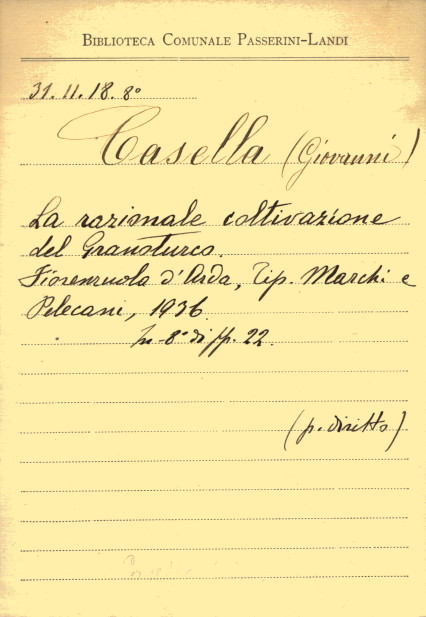 BIBLIOTECA COMUNALE PASSERINI-LANDI
31.11.18.8°
Casella (Giovanni)
La razionale coltivazione
del Granoturco.
Fiorenzuola d'Arda, Tip. Marchi e
Pelecani, 1936
In-8° di pp. 22.
(p. diritto)